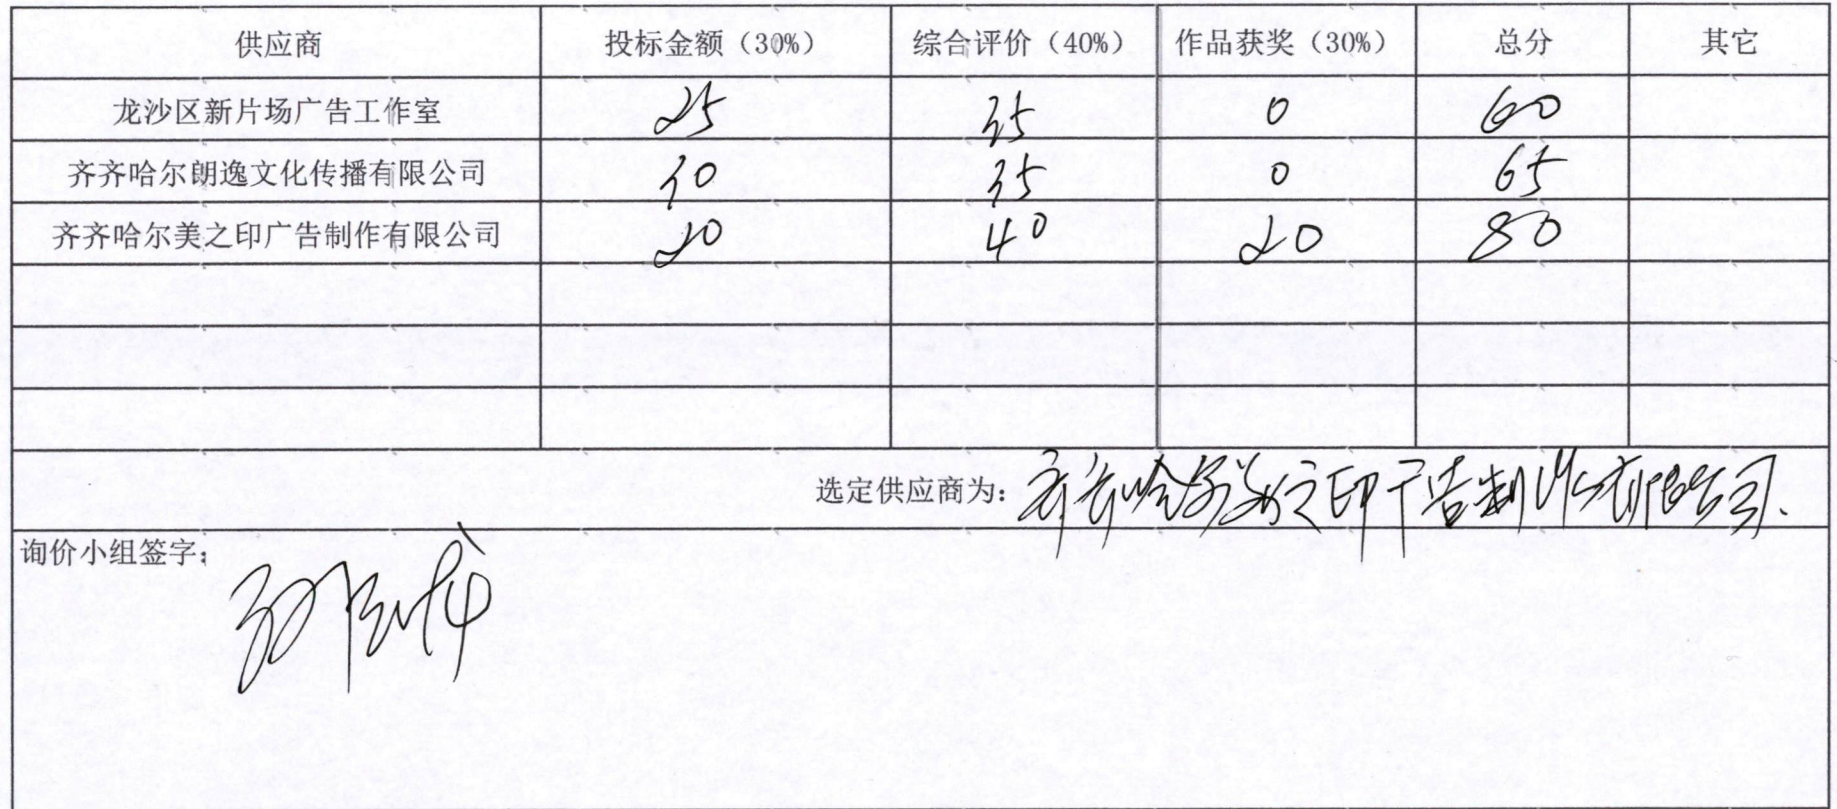 供应商 投标金额（30%） 综合评价（40%） 作品获奖（30%） 总分 其它
龙沙区新片场广告工作室 25 35 0 60
齐齐哈尔朗逸文化传播有限公司 30 35 0 65
齐齐哈尔美之印广告制作有限公司 20 40 20 80
选定供应商为：齐齐哈尔美之印广告制作有限公司.
询价小组签字；